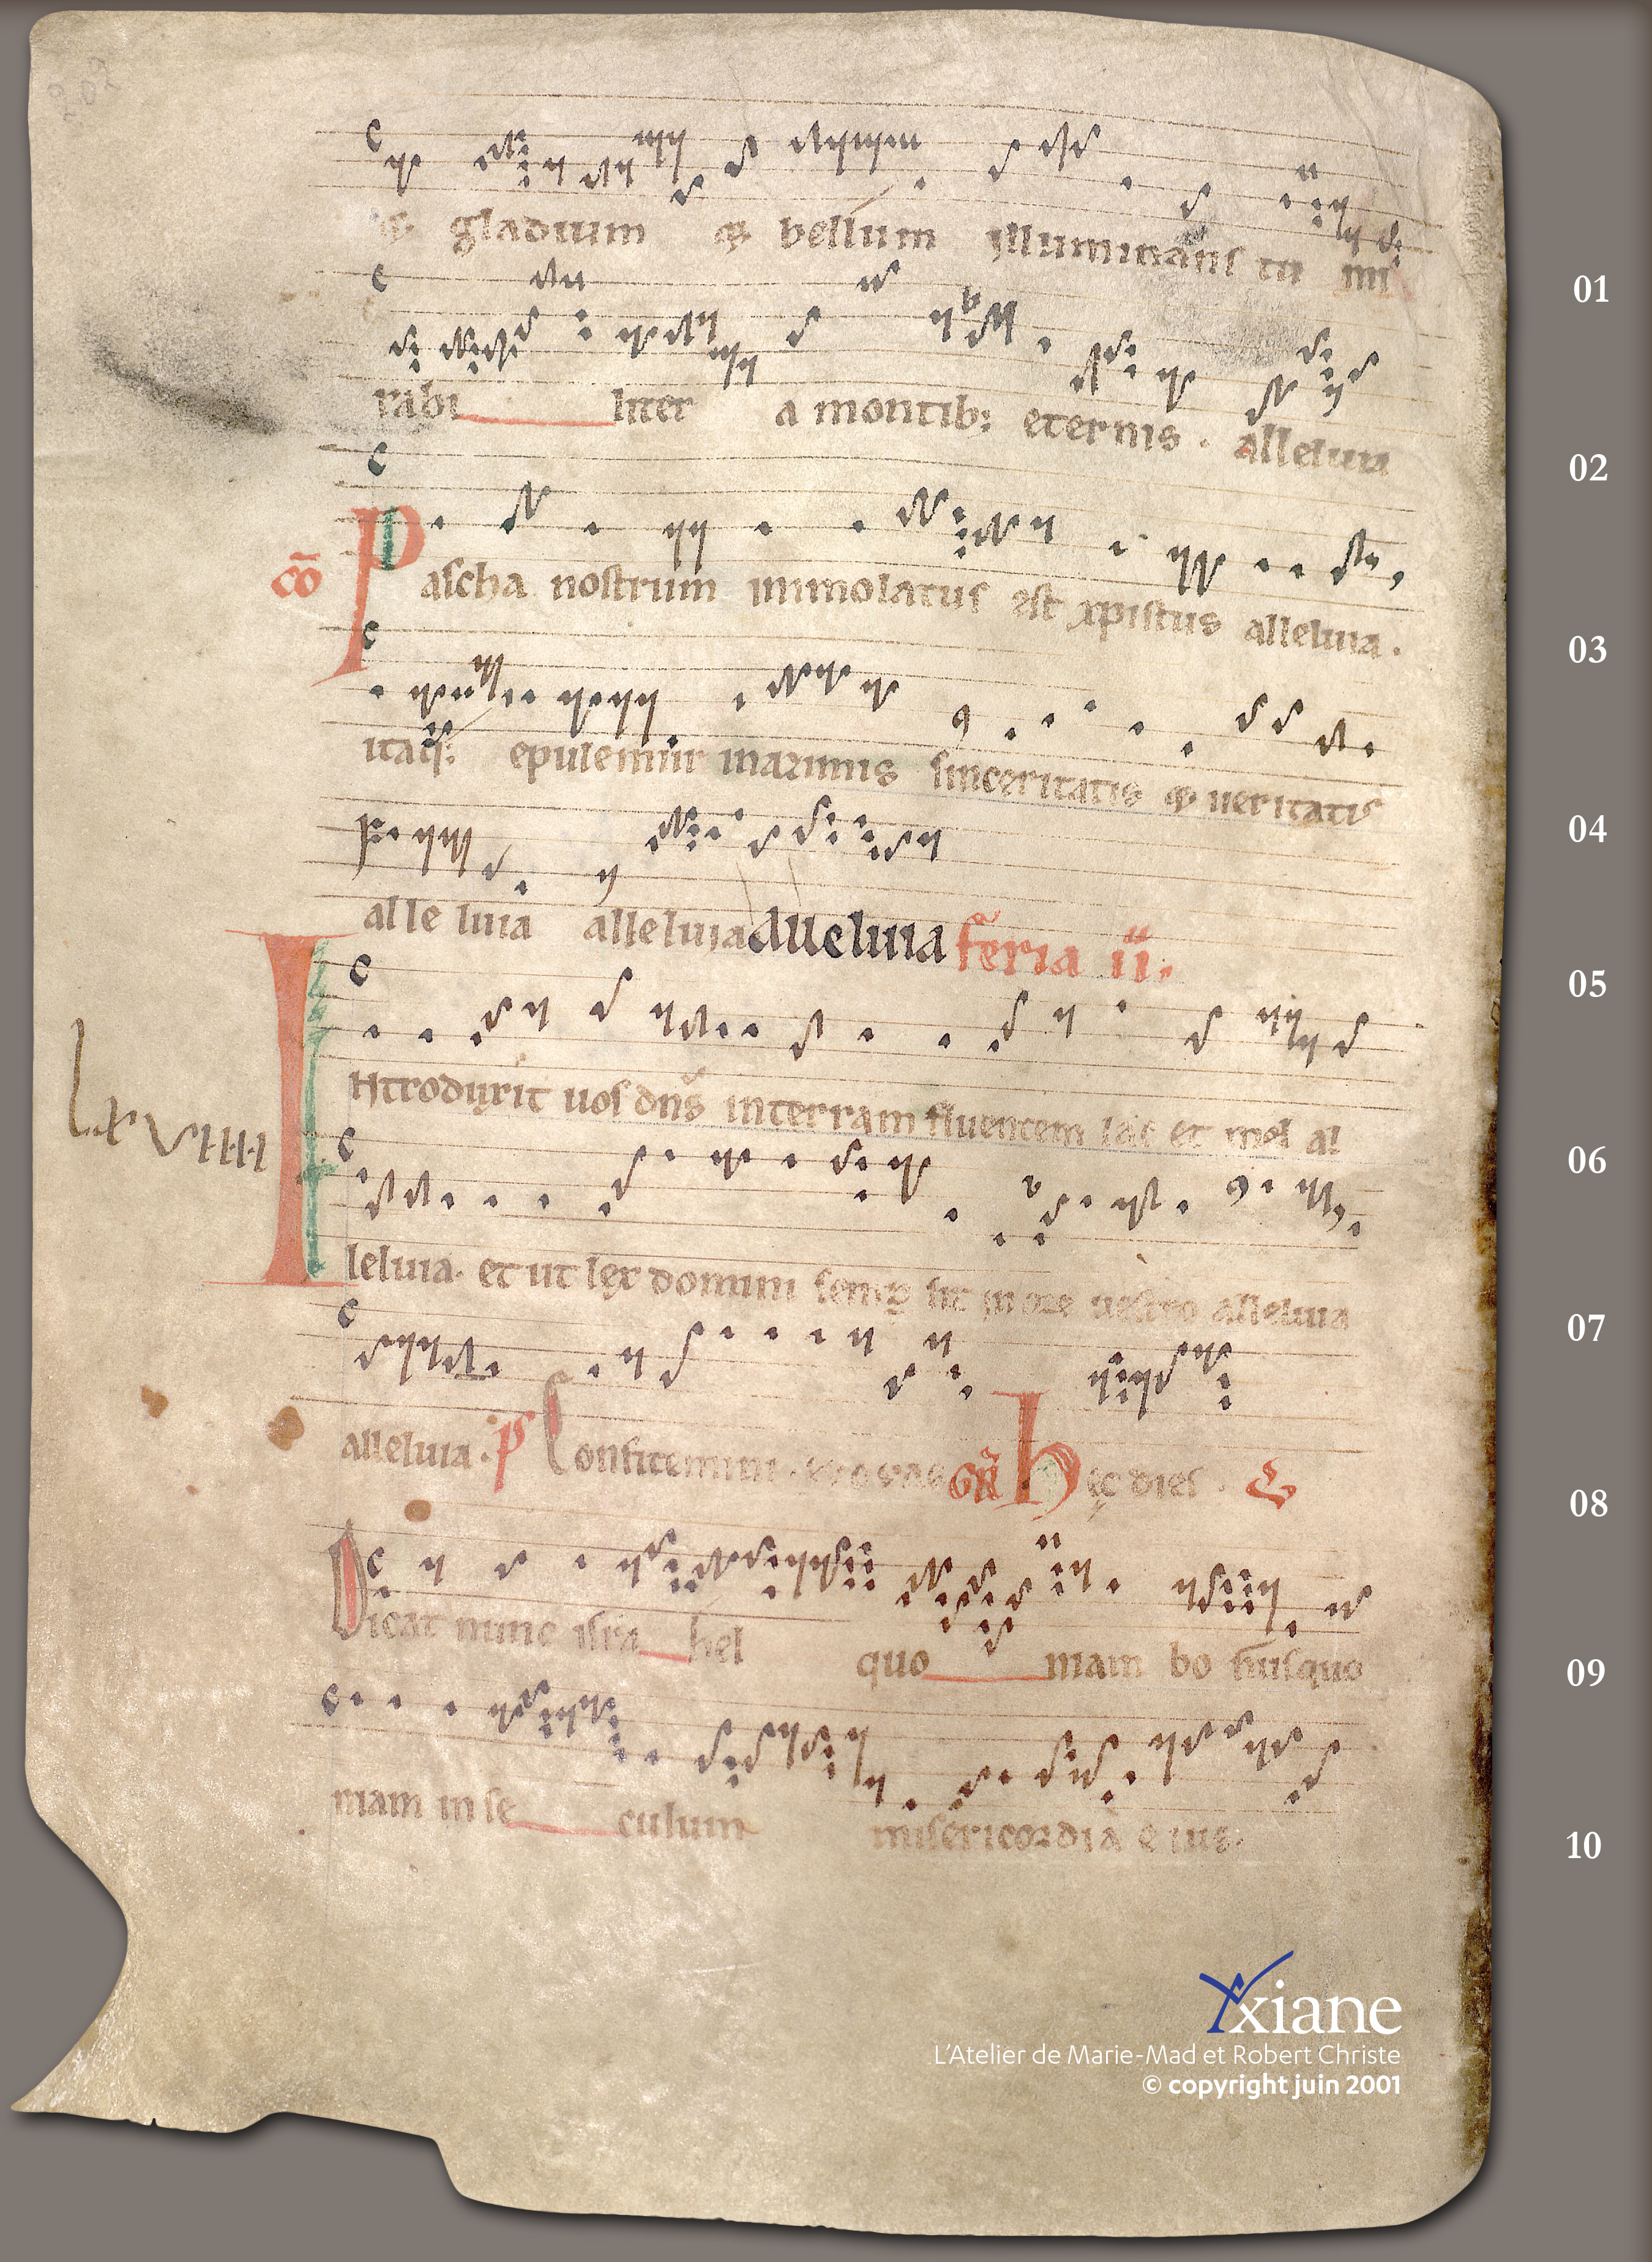 202
& gladium & bellum illuminans tu mi
rabi liter a montib; eternis . alleluia
cō Pascha nostrum immolatus est xpistus alleluia .
itaq; epulemur inazimis sinceritatis & ueritatis
alleluia alleluia alleluia feria ii.
lxviiii
Introduxit uos dns interram fluentem lac et mel al
leluia . et ut lex domini semp sit in ore uestro alleluia
alleluia . p Confitemini . Hec dies .
Dicat nunc isra hel quo niam bo nus quo
niam in se culum misericordia eius .
01
02
03
04
05
06
07
08
09
10
xiane
L'Atelier de Marie-Mad et Robert Christe
© copyright juin 2001